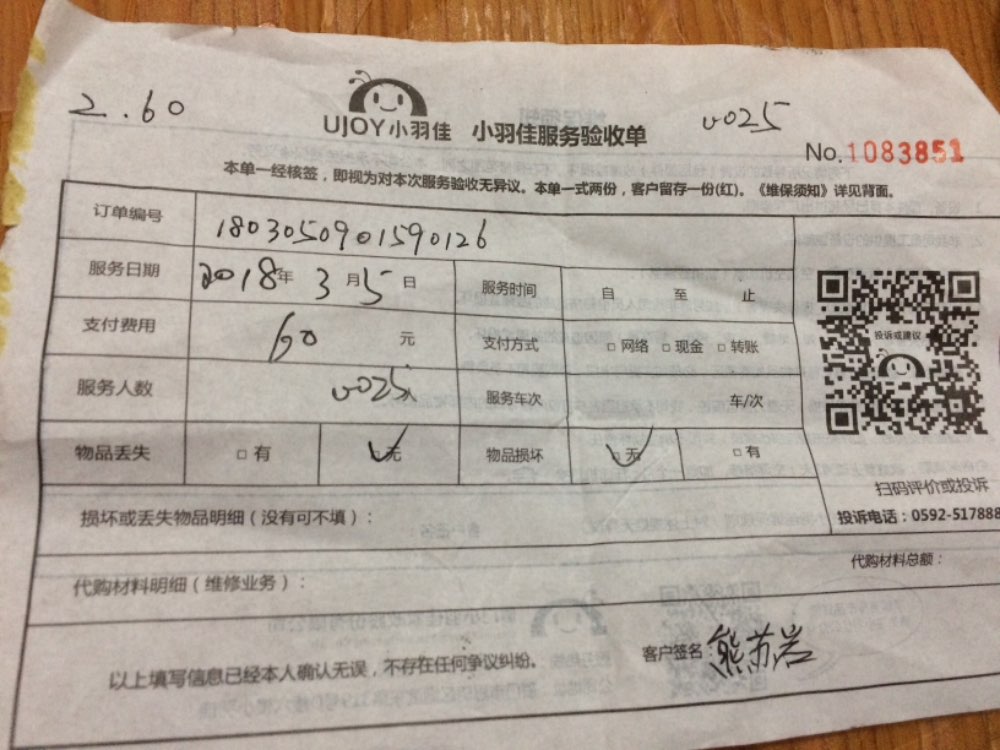 2.60
UJOY小羽佳 小羽佳服务验收单
υ025
No.1083851
本单一经核签，即视为对本次服务验收无异议。本单一式两份，客户留存一份(红)。《维保须知》详见背面。
订单编号 1803050901590126
服务日期 2018年3月5日 服务时间 自 至 止
支付费用 60 元 支付方式 □网络 □现金 □转账
服务人数 υ025人 服务车次 车/次
物品丢失 □有 ✓无 物品损坏 ✓无 □有
投诉或建议
扫码评价或投诉
投诉电话：0592-517888
损坏或丢失物品明细（没有可不填）：
代购材料明细（维修业务）： 代购材料总额：
以上填写信息已经本人确认无误，不存在任何争议纠纷。 客户签名：熊苏岩